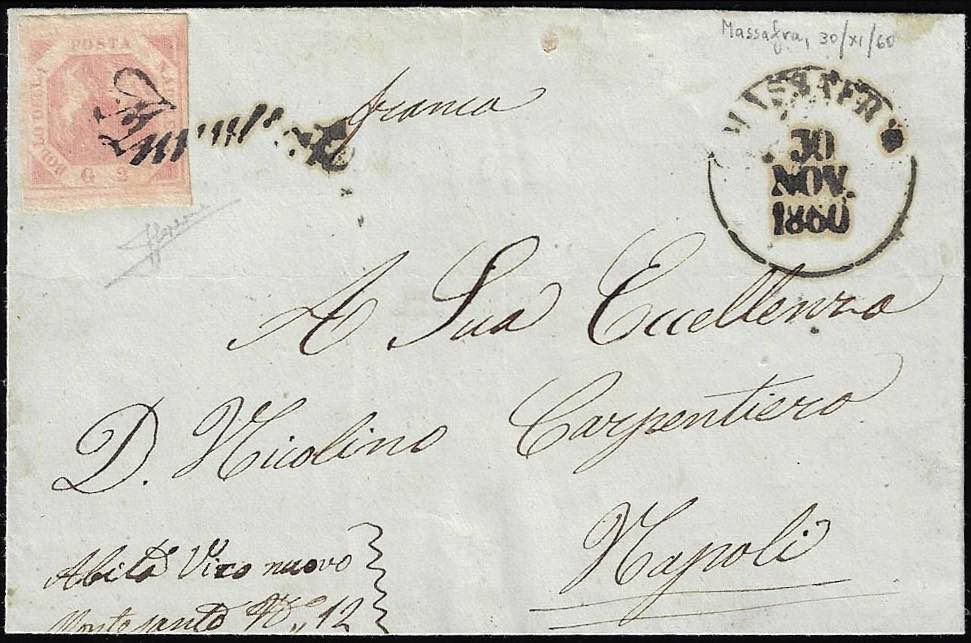 Massafra, 30/XI/60
POSTA
BOLLO DELLA
G 2
Annullato
franca
MASSAFR
30
NOV.
1860
A Sua Eccellenza
D. Nicolino Carpentiero
Napoli
Abita Vico nuovo
Montesanto N° 12